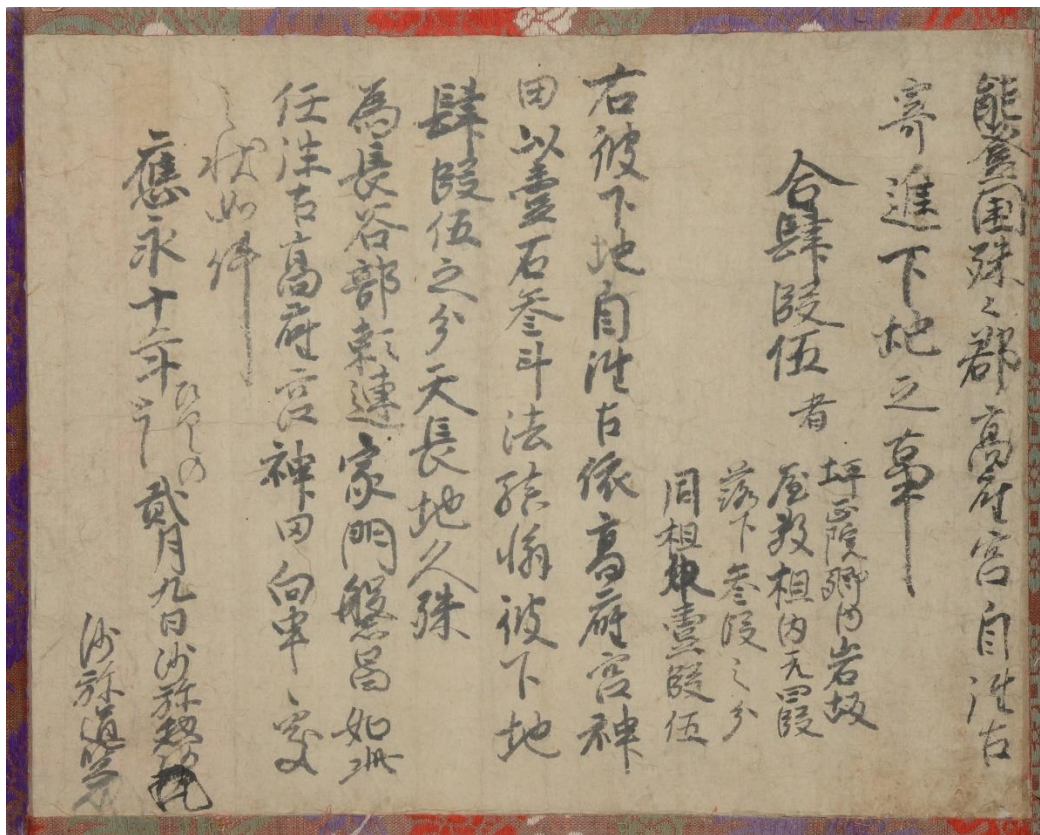 能登国珠々郡高座宮自往古
寄進下地之事
合肆段伍者
坪正院郷内岩坂
屋敷相内元四段
落下参段之分
同相壹段伍
右彼下地自往古依高座宮神
田以壹石参斗法彼下地
肆段伍之分天長地久殊
為長谷部家門繁昌如此
任往古高座宮神田向申之処
之状如件
應永十年貳月九日沙弥
沙弥道